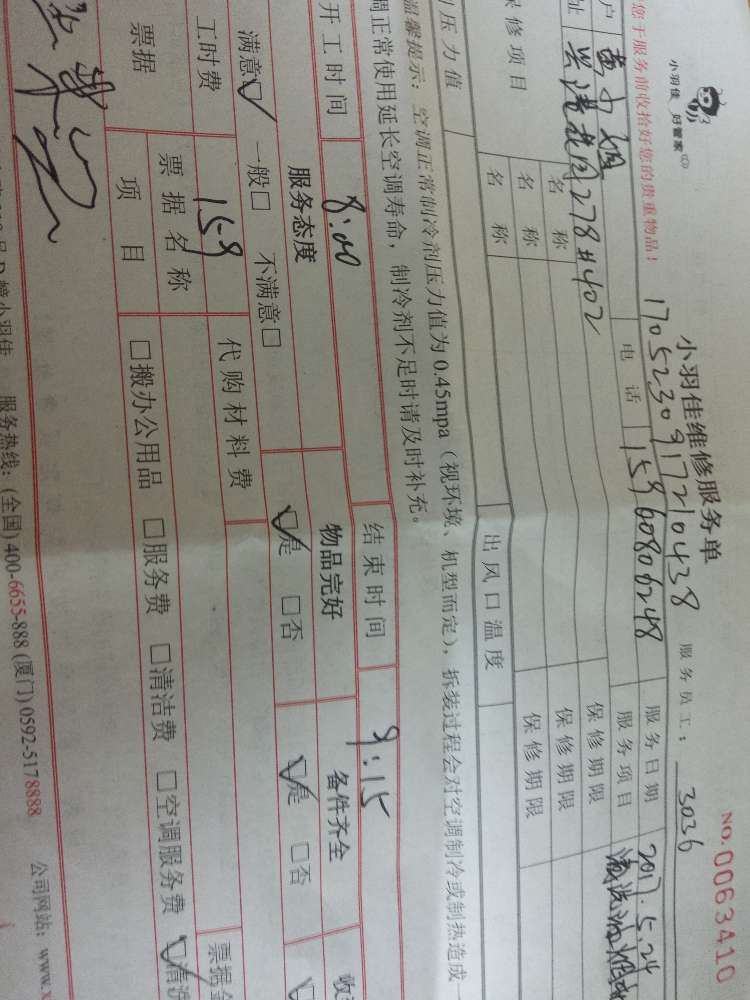 小羽佳 好管家
小羽佳维修服务单
NO.0063410
您于服务前收拾好您的贵重物品!
1705230917210438
服务员工: 3036
户
电话 15960806248
服务日期 2017.5.24
址
278#402
服务项目
保修项目 名称 保修期限
名称 保修期限
名称 保修期限
压力值 出风口温度
温馨提示: 空调正常制冷剂压力值为0.45mpa(视环境、机型而定), 拆装过程会对空调制冷或制热造成一
调正常使用延长空调寿命, 制冷剂不足时请及时补充。
开工时间 8:00 结束时间 9:15
服务态度 物品完好 备件齐全
满意☑ 一般□ 不满意□ ☑是 □否 ☑是 □否
工时费 159 代购材料费
票据 票据名称 票据金
项目 □搬办公用品 □服务费 □清洁费 □空调服务费 ☑清洗
小羽佳 服务热线: (全国) 400-6655-888 (厦门) 0592-5178888 公司网站: www.x